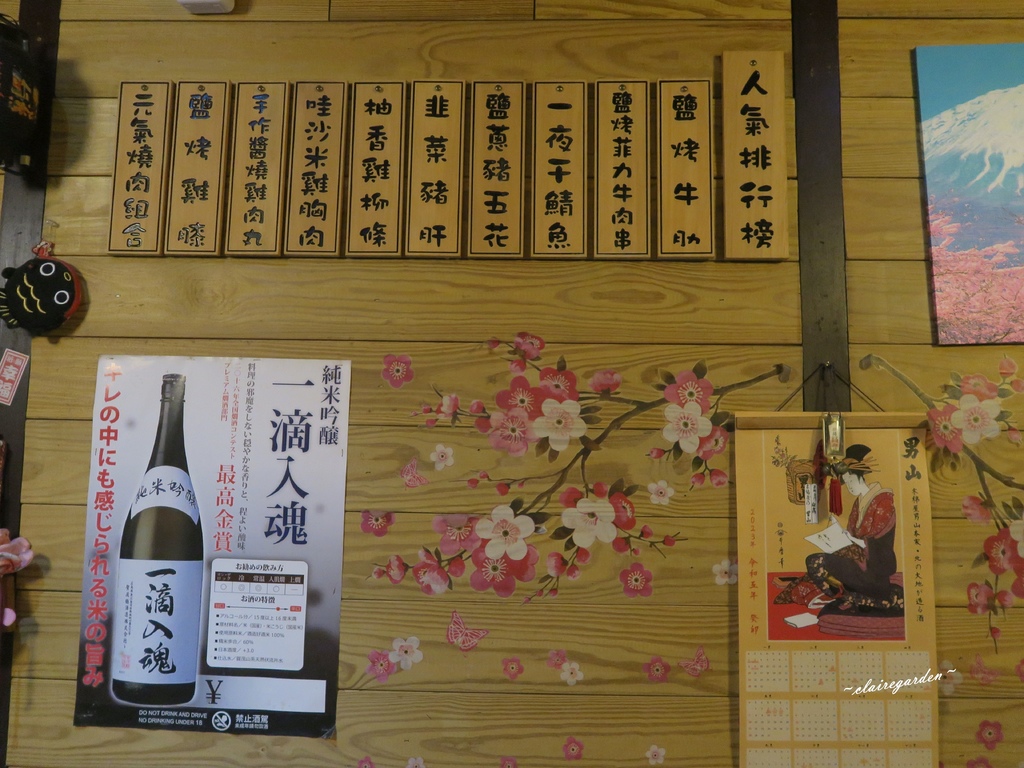 人氣排行榜
鹽烤牛肋
鹽烤菲力牛肉串
一夜干鯖魚
鹽蔥豬五花
韭菜豬肝
柚香雞柳條
哇沙米雞胸肉
手作醬燒雞肉丸
鹽烤雞膝
元氣燒肉組合
純米吟醸
一滴入魂
料理の邪魔をしない穏やかな香りと、程よい酸味
プレミアム燗酒部門
最高金賞
キレの中にも感じられる米の旨み
純米吟醸
一滴入魂
お勧めの飲み方
冷
常温
人肌燗
上燗
お酒の特徴
¥
DO NOT DRINK AND DRIVE
NO DRINKING UNDER 18
禁止酒駕
男山
2023年 令和五年 癸卯
~clairegarden~